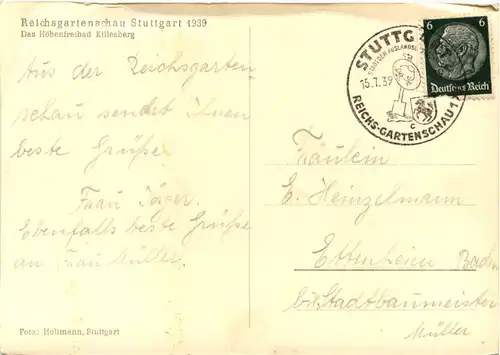 Reichsgartenschau Stuttgart 1939
Das Höhenfreibad Killesberg
Aus der Reichsgarten
schau sendet Ihnen
beste Grüße
Frau Jäger.
Ebenfalls beste Grüße
an Frau Müller.
Foto: Holtmann, Stuttgart
STUTTG
STADT DER AUSLANDS
15.7.39
C
REICHS-GARTENSCHAU
6
6
Deutsches Reich
Fräulein
E. Heinzelmann
Ettenheim Baden
Stadtbaumeister
Müller